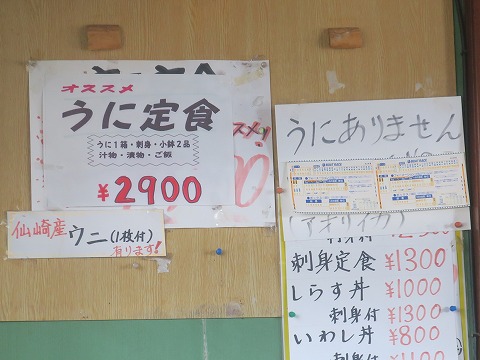 オススメ
うに定食
うに1箱・刺身・小鉢2品
汁物・漬物・ご飯
¥2900
仙崎産 ウニ(1枚付)
有ります!
うにありません
(アオリイカ)
刺身定食 ¥1300
しらす丼 ¥1000
刺身付 ¥1300
いわし丼 ¥800
刺身付